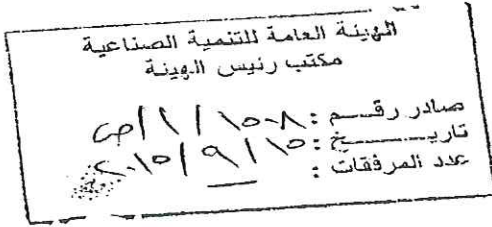 الهيئة العامة للتنمية الصناعية
مكتب رئيس الهيئة
صادر رقم : ١٥٠٨ / ١ / ص
تاريخ : ١٥ / ٩ / ٢٠١٥
عدد المرفقات :